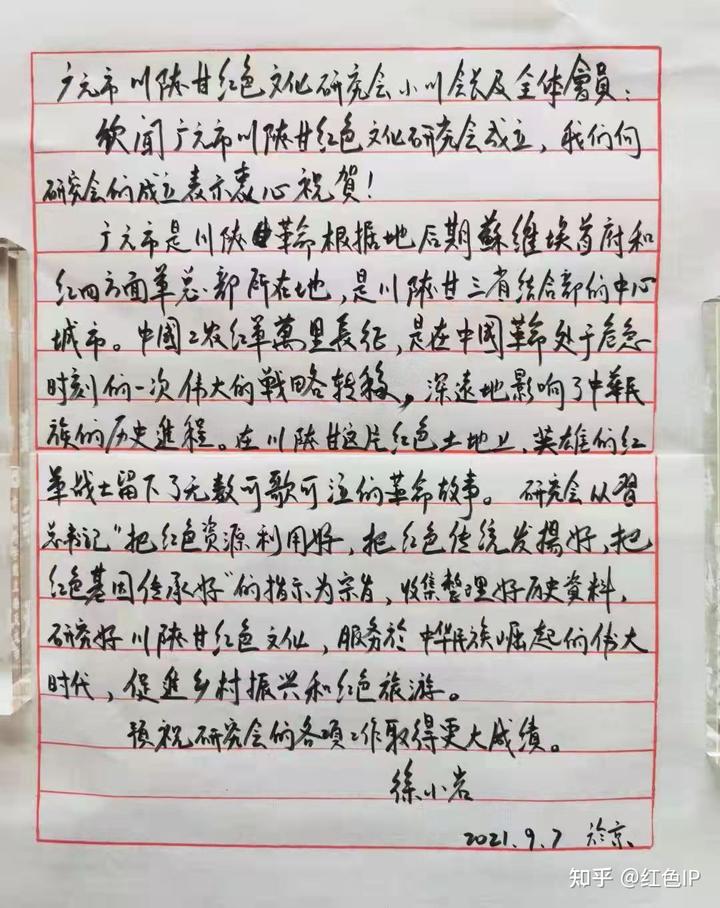 广元市川陕甘红色文化研究会小川会长及全体會員：
欣闻广元市川陕甘红色文化研究会成立，我们向
研究会的成立表示衷心祝賀！
广元市是川陕革命根据地后期蘇維埃政府和
红四方面军总部所在地，是川陕甘三省结合部的中心
城市。中國工农红军萬里長征，是在中國革命处于危急
时刻的一次伟大的战略转移，深遠地影响了中華民
族的历史進程。在川陕甘这片红色土地上，英雄的红
军战士留下了无数可歌可泣的革命故事。研究会以習
总书记"把红色资源利用好，把红色传统发揚好，把
红色基因传承好"的指示为宗旨，收集整理好历史資料，
研究好川陕甘红色文化，服务於中华民族崛起的伟大
时代，促進乡村振兴和红色旅游。
预祝研究会的各项工作取得更大成绩。
徐小岩
2021.9.7 於京
知乎 @红色IP